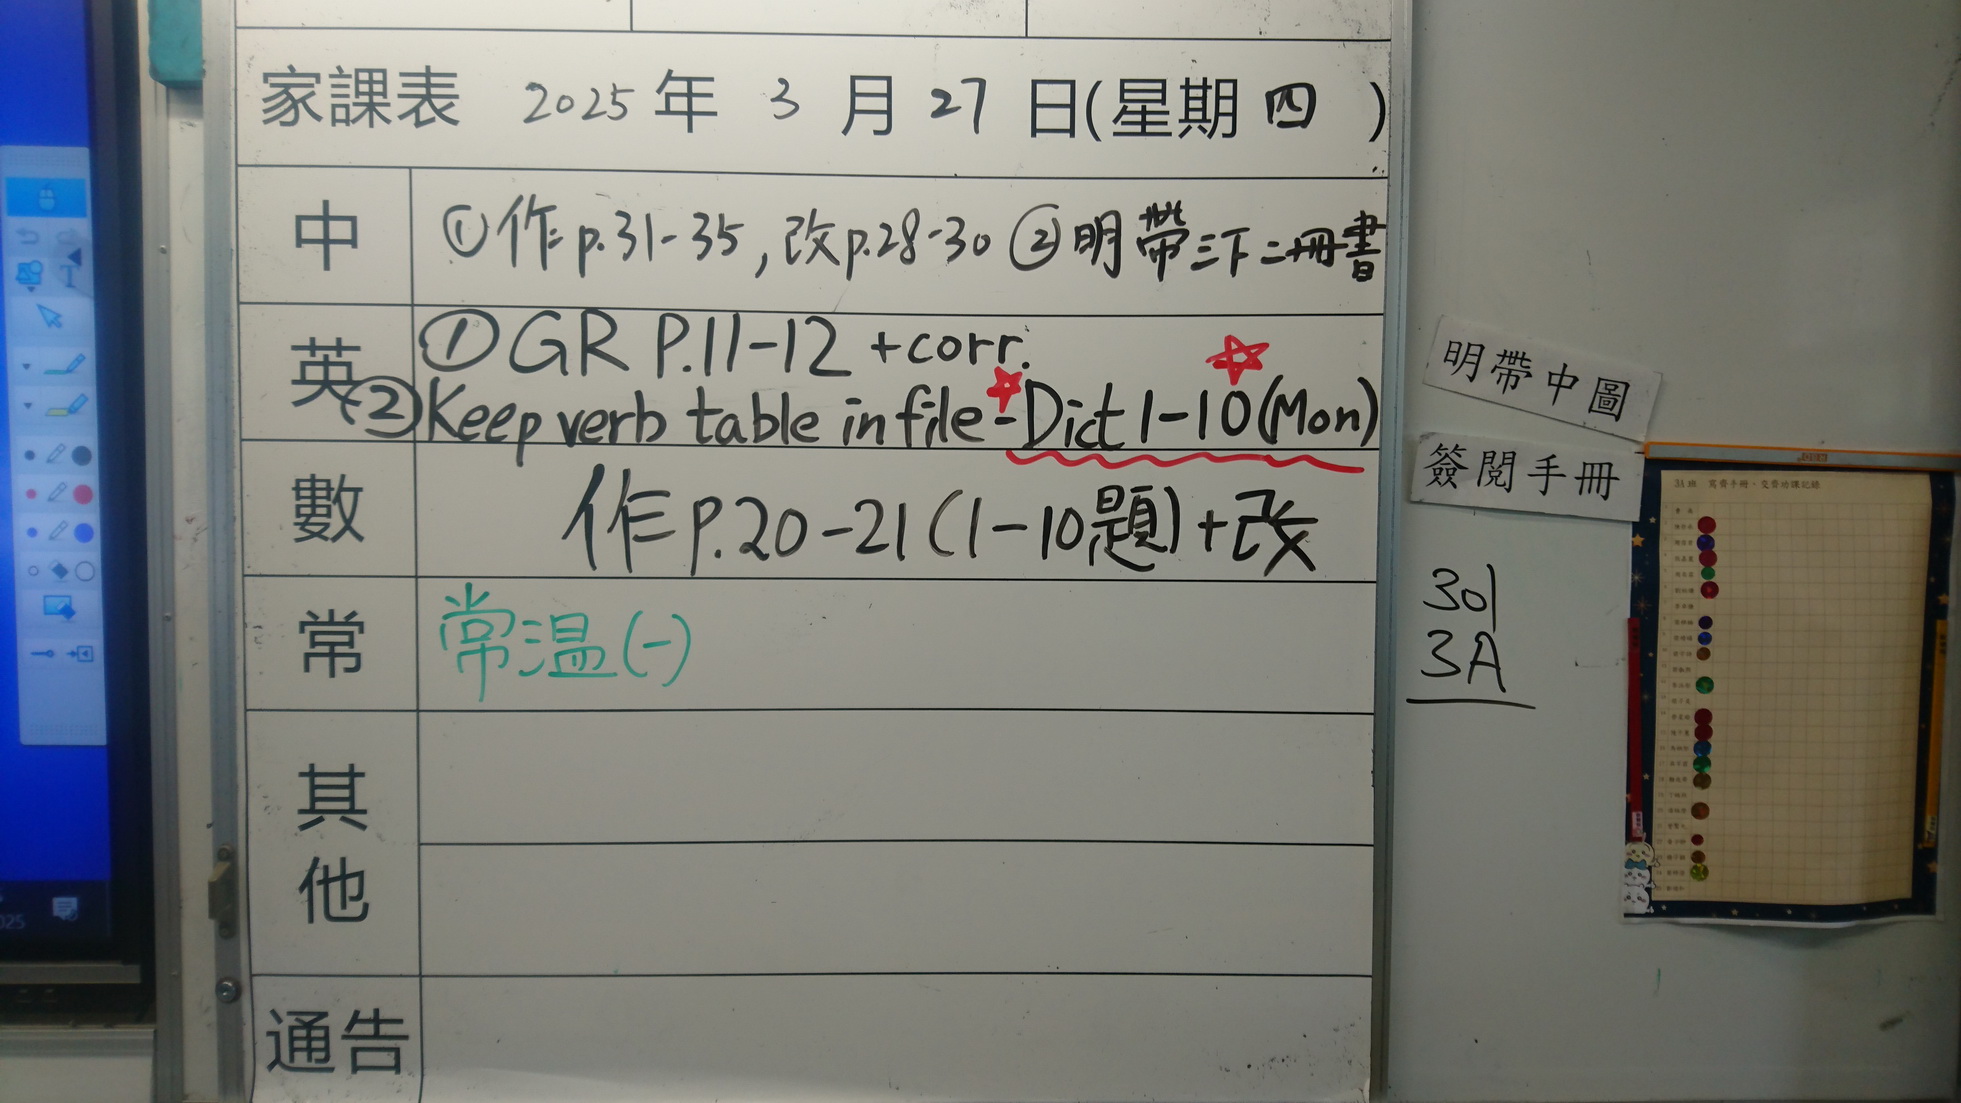 家課表 2025 年 3 月 27 日(星期 四 )
中 ①作p.31-35,改p.28-30 ②明帶三下二冊書
英 ①GR P.11-12 +corr.
②Keep verb table in file-Dict 1-10(Mon)
數 作p.20-21(1-10題)+改
常 常温(一)
其他
通告
明帶中圖
簽閱手冊
30
3A